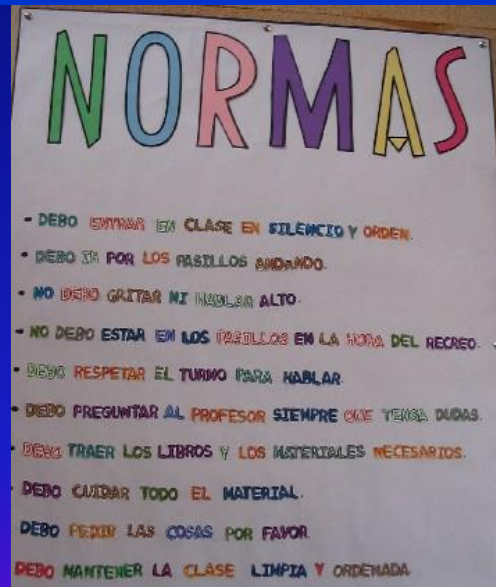 NORMAS
- DEBO ENTRAR EN CLASE EN SILENCIO Y ORDEN.
- DEBO IR POR LOS PASILLOS ANDANDO.
- NO DEBO GRITAR NI HABLAR ALTO.
- NO DEBO ESTAR EN LOS PASILLOS EN LA HORA DEL RECREO.
- DEBO RESPETAR EL TURNO PARA HABLAR.
- DEBO PREGUNTAR AL PROFESOR SIEMPRE QUE TENGA DUDAS.
- DEBO TRAER LOS LIBROS Y LOS MATERIALES NECESARIOS.
- DEBO CUIDAR TODO EL MATERIAL.
DEBO PEDIR LAS COSAS POR FAVOR.
DEBO MANTENER LA CLASE LIMPIA Y ORDENADA